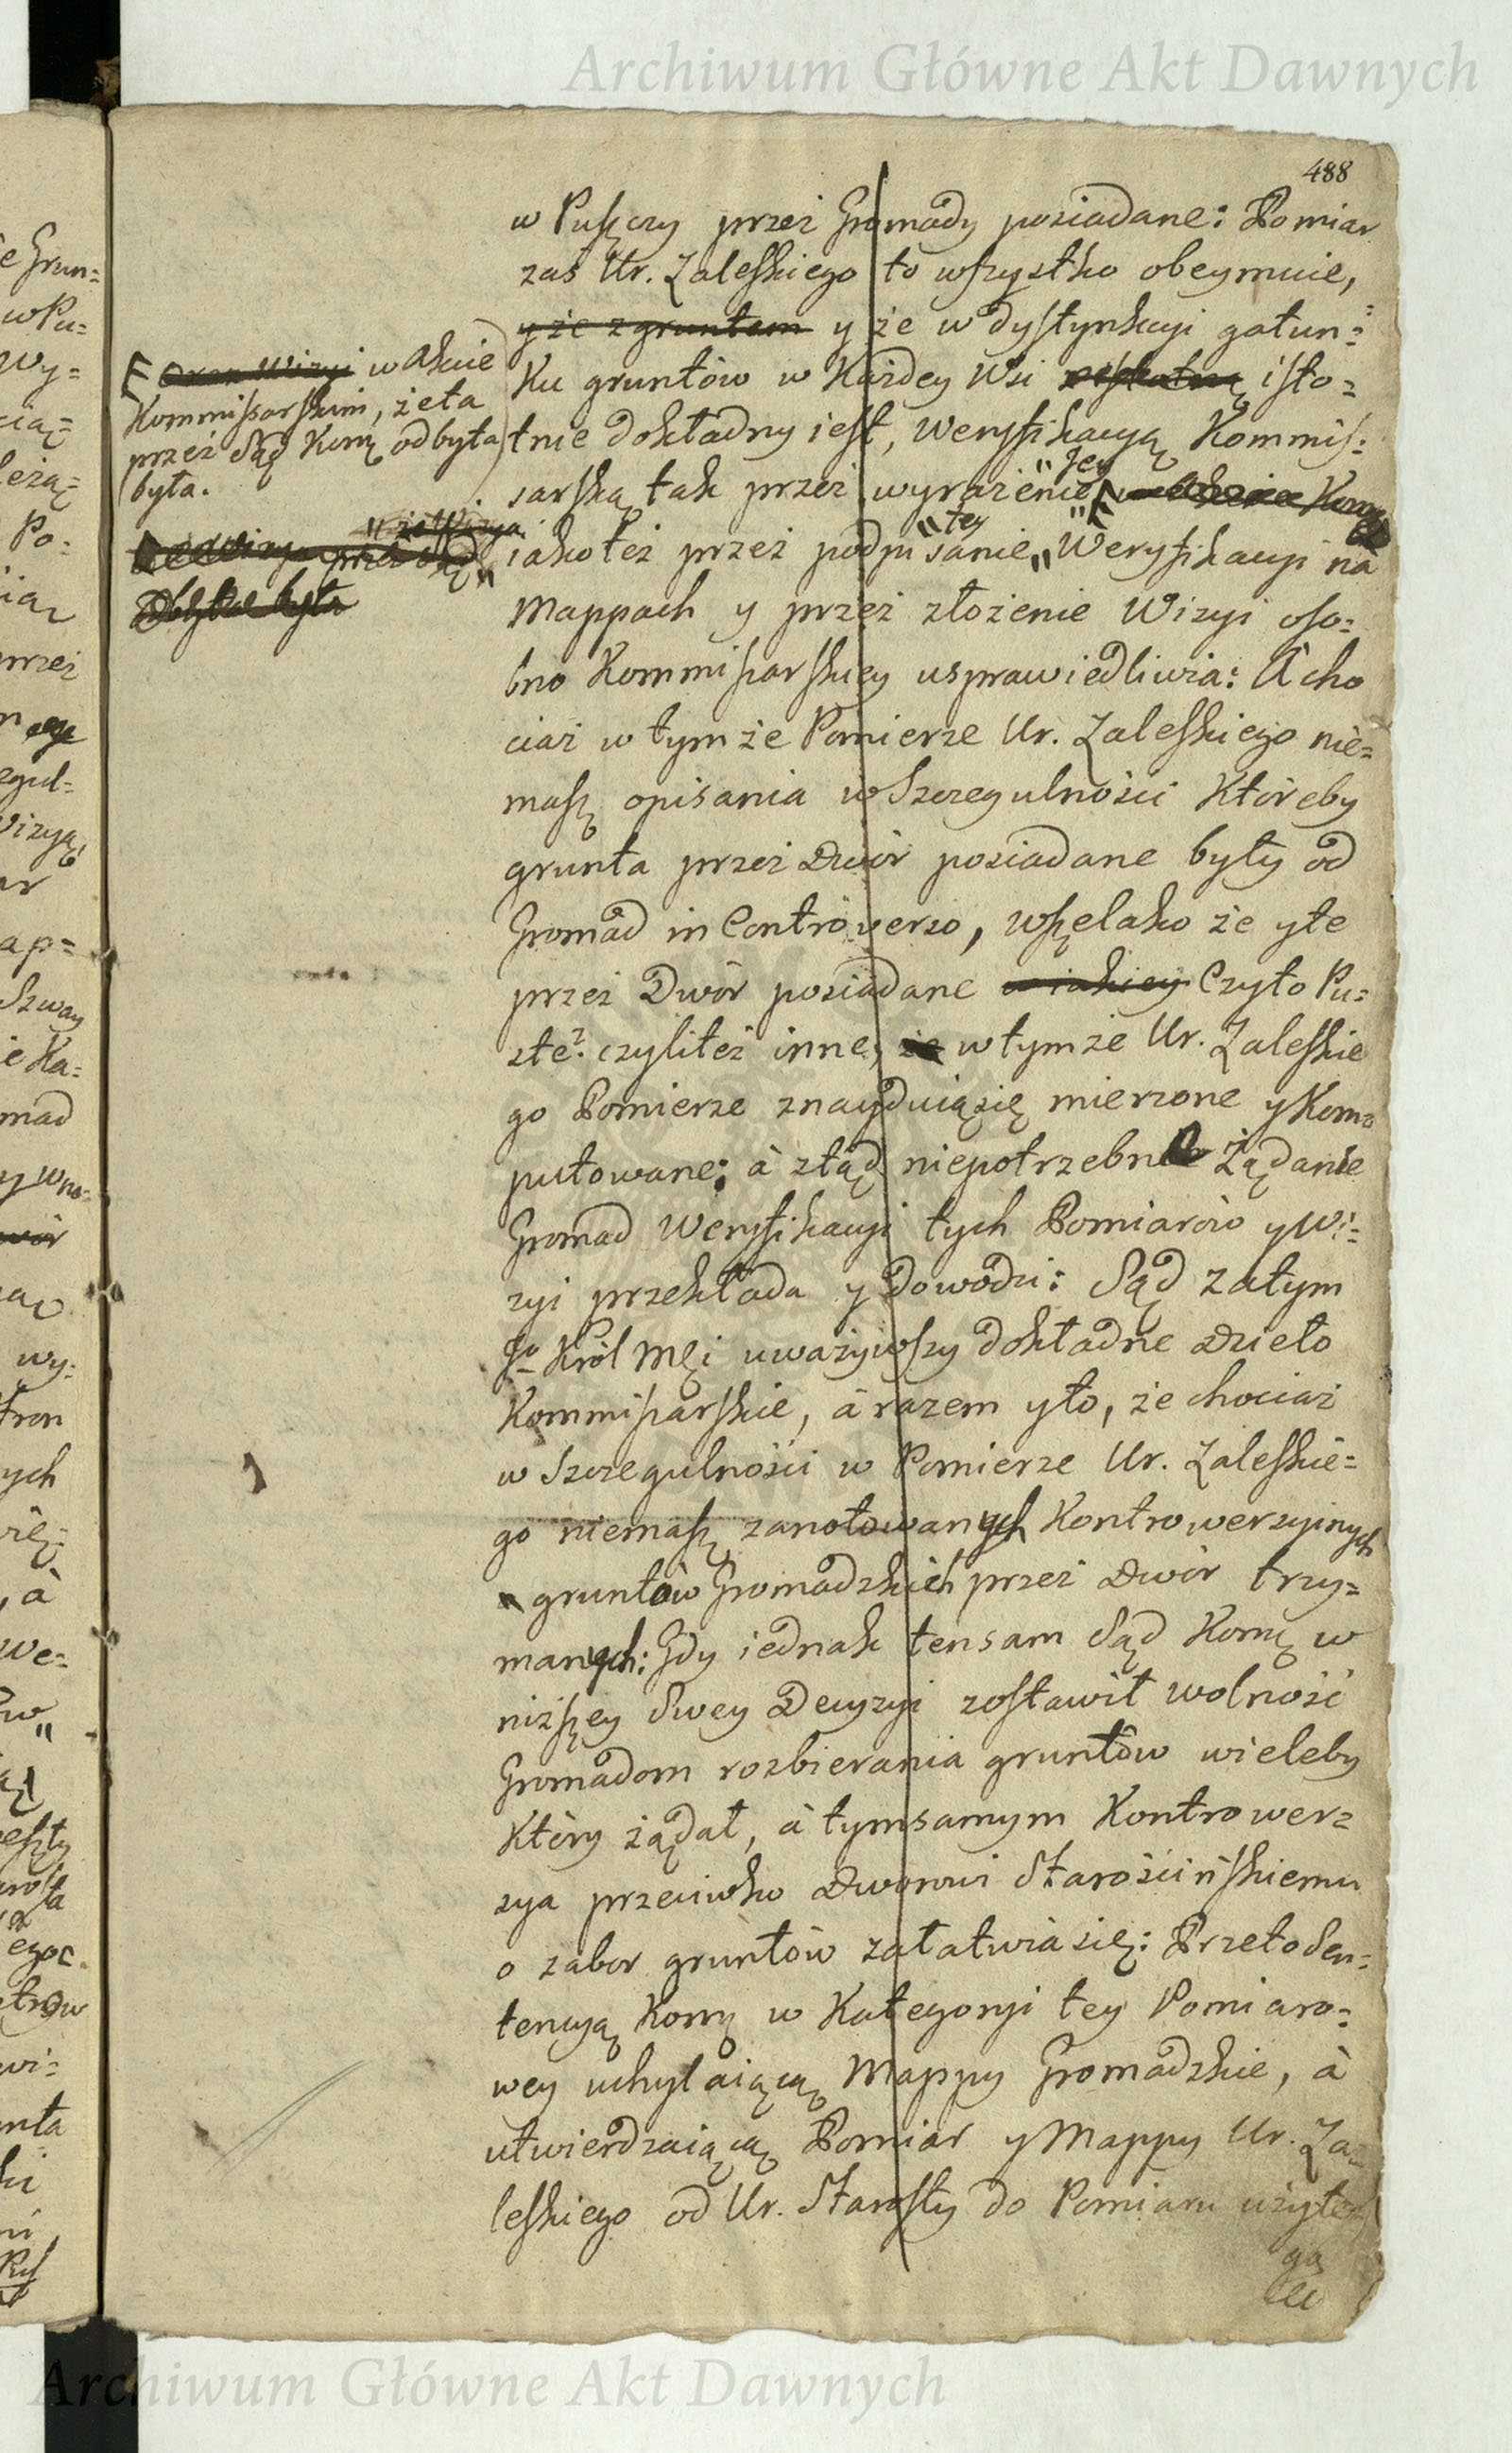 Archiwum Główne Akt Dawnych
488
w Puszczy przez Gromady posiadane: Pomiar
zaś Ur. Zaleskiego to wszystko obeymuie,
y że z gruntem y że w dystynkcyi gatun:
ku gruntów w Każdey Wsi isto=
tnie dokładny iest, Weryfikacyą Kommis:
sarską tak przez wyrażenie " Jey "
iako też przez podpisanie " tey " Weryfikacyi na
Mappach y przez złożenie Wizyi oso=
bno Kommissarskiey usprawiedliwia: A cho
ciaż w tym że Pomierze Ur. Zaleskiego nie=
masz opisania w Szczegulności Któreby
grunta przez Dwór posiadane były od
Gromad in Controverso, wszelako że y te
przez Dwór posiadane w iakiey Czyto Pu=
ste? czyliteż inne, że w tymże Ur. Zaleskie
go Pomierze znayduią się mierzone y Kom=
putowane; à ztąd niepotrzebne Żądanie
Gromad Weryfikacyi tych Pomiarów y Wi=
zyi przekłada y dowodzi: Sąd zatym
Jo Król Mci uważywszy dokładne Dzieło
Kommissarskie, à razem y to, że chociaż
w Szczegulności w Pomierze Ur. Zaleskie=
go niemasz zanotowanych Kontrowerzyinych
gruntów Gromadzkich przez Dwór trzy=
manych: Gdy iednak tensam Sąd Komą w
niższey Swey Decyzyi zostawił wolność
Gromadom rozbierania gruntów wieleby
Który żądał, à tymsamym Kontrower=
zya przeciwko Dworowi Starościńskiemu
o zabor gruntów załatwia się: Przeto Sen=
tencyą Komą w Kategoryi tey Pomiaro=
wey uchylaiącą Mappy Gromadzkie, à
utwierdzaiącą Pomiar y Mappy Ur. Za=
leskiego od Ur. Starosty do Pomiaru użyte
go
F oraz Wizyi w Akcie
Kommissarskim, że ta
przez Sąd Komą odbyta
była.
" że Wizya
przez Sąd "
odbyta była
Archiwum Główne Akt Dawnych